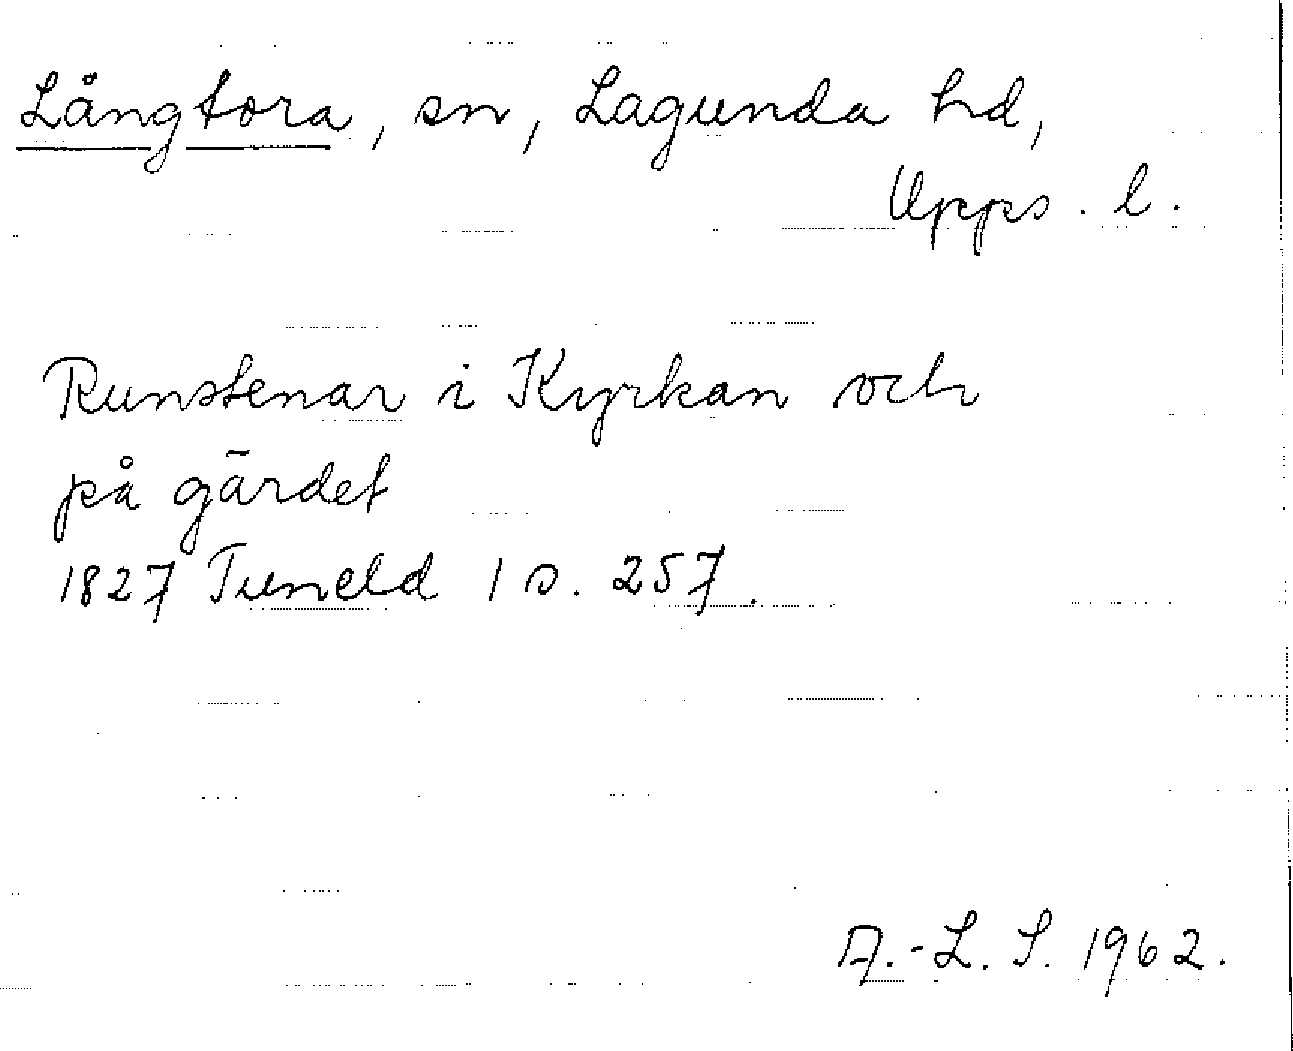 Långtora, sn, Lagunda hd,
Upps. l.
Runstenar i Kyrkan och
på gärdet
1827 Tuneld 1 s. 257.
A.-L. S. 1962.